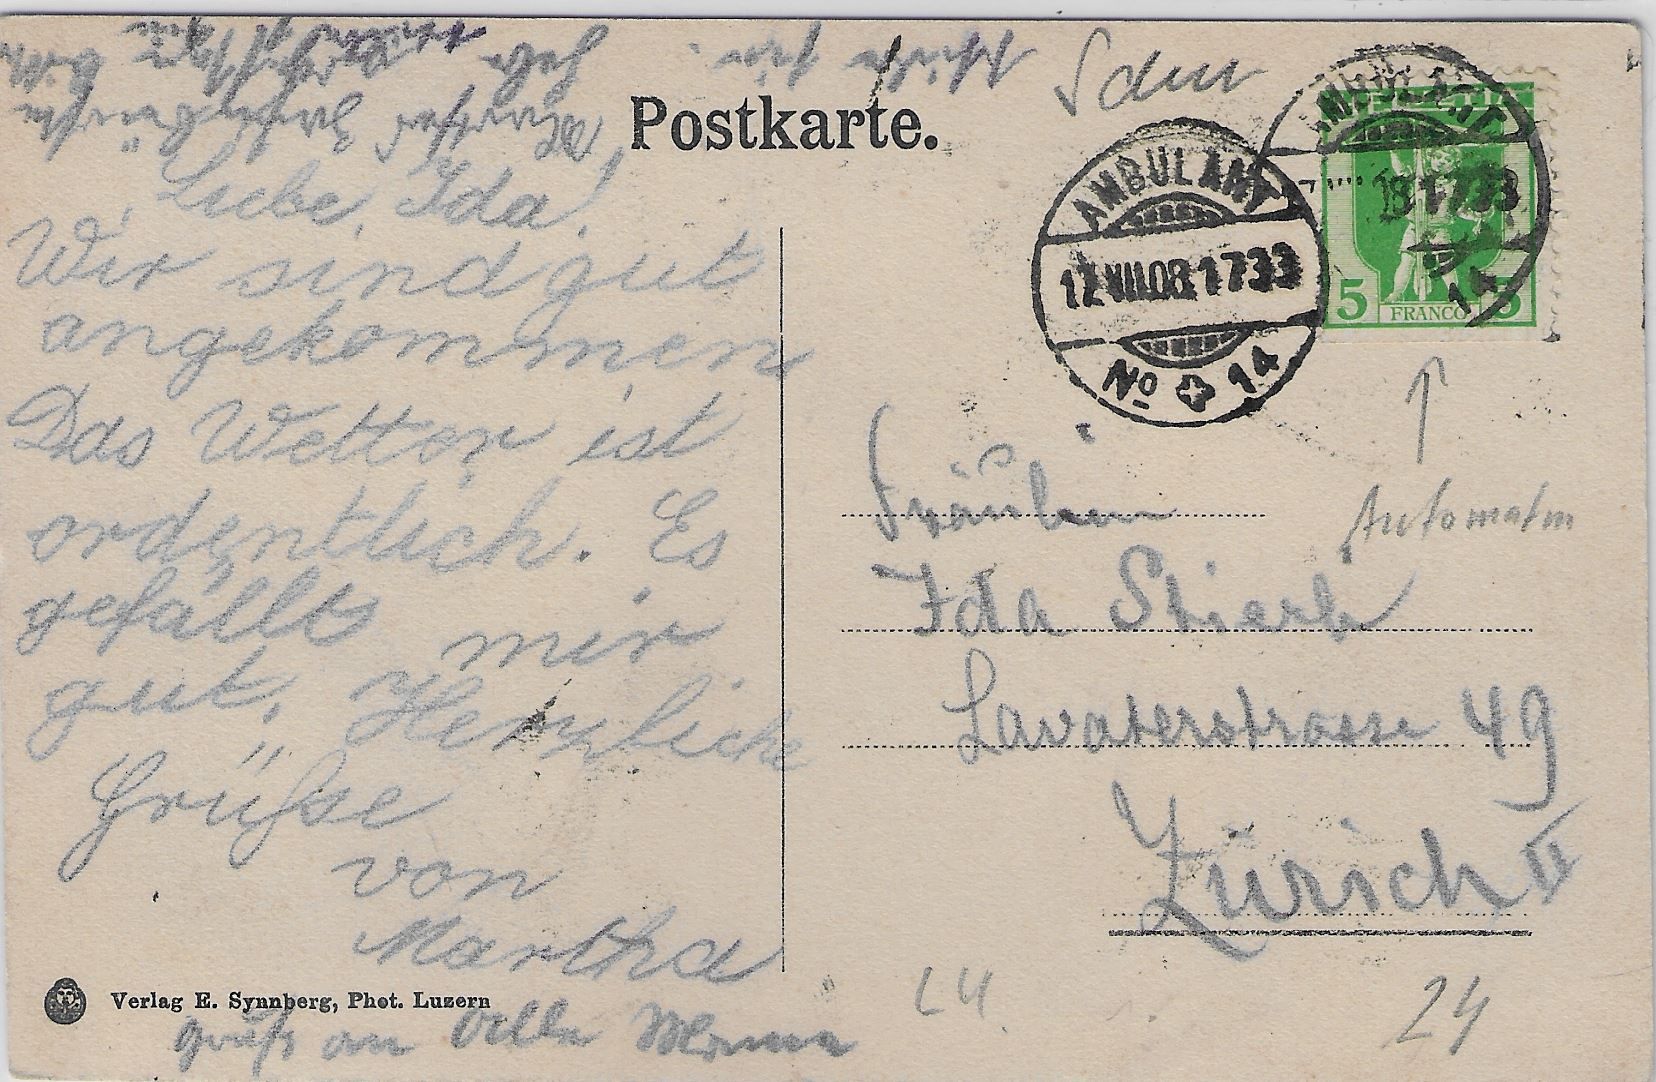 Postkarte.
Liebe Ida!
Wir sind gut
angekommen
Das Wetter ist
ordentlich. Es
gefällts mir
gut. Herzliche
Grüsse
von
Martha
Verlag E. Synnberg, Phot. Luzern
grüss an Alle Mama
AMBULANT
12.VII.08.1733
No 14
AMBULANT
1733
14
HELVETIA
5 FRANCO 5
Automaten
Fräulein
Ida Stierli
Lavaterstrasse 49
Zürich II
24